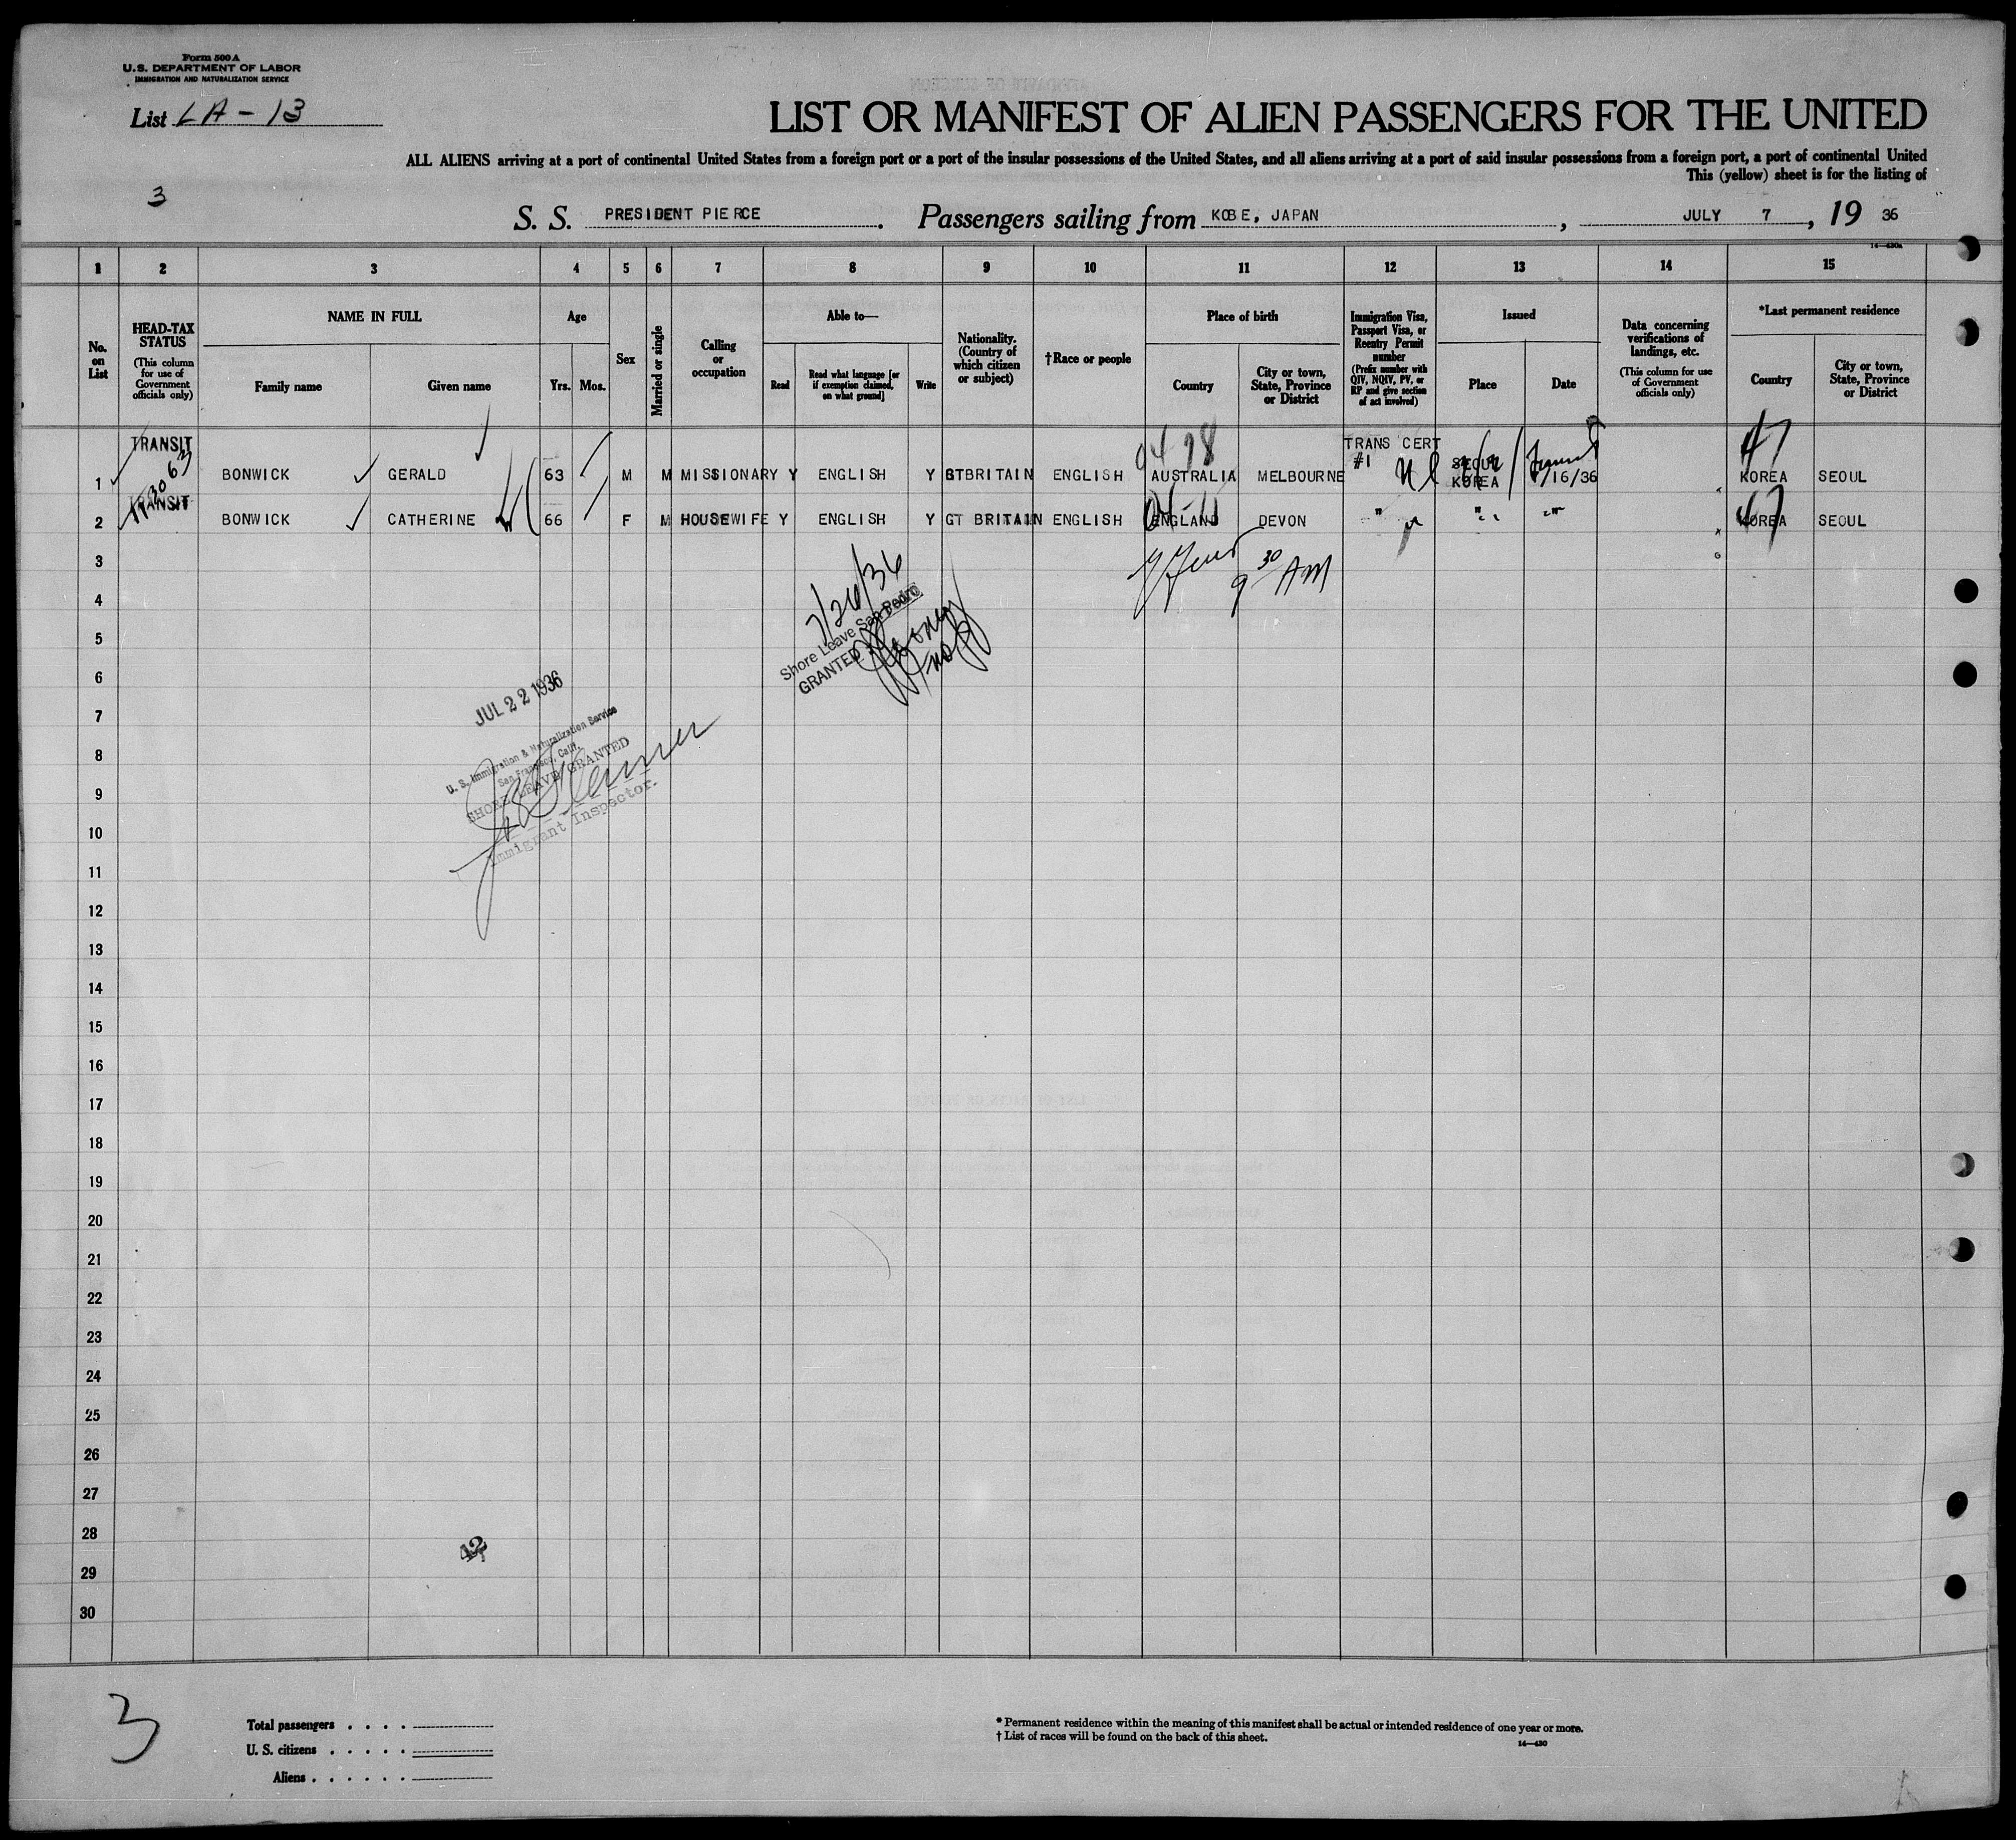 Form 500 A
U. S. DEPARTMENT OF LABOR
IMMIGRATION AND NATURALIZATION SERVICE
List LA - 13
LIST OR MANIFEST OF ALIEN PASSENGERS FOR THE UNITED
ALL ALIENS arriving at a port of continental United States from a foreign port or a port of the insular possessions of the United States, and all aliens arriving at a port of said insular possessions from a foreign port, a port of continental United
This (yellow) sheet is for the listing of
3
S. S. PRESIDENT PIERCE . Passengers sailing from KOBE, JAPAN , JULY 7 , 19 36
14—430a
1 2 3 4 5 6 7 8 9 10 11 12 13 14 15
No. on List
HEAD-TAX STATUS (This column for use of Government officials only)
NAME IN FULL
Family name Given name
Age
Yrs. Mos.
Sex
Married or single
Calling or occupation
Able to—
Read
Read what language [or if exemption claimed, on what ground]
Write
Nationality. (Country of which citizen or subject)
† Race or people
Place of birth
Country
City or town, State, Province or District
Immigration Visa, Passport Visa, or Reentry Permit number (Prefix number with QIV, NQIV, PV, or RP and give section of act involved)
Issued
Place Date
Data concerning verifications of landings, etc. (This column for use of Government officials only)
*Last permanent residence
Country
City or town, State, Province or District
TRANSIT TRANS CERT
1 BONWICK GERALD 63 M M MISSIONARY Y ENGLISH Y GTBRITAIN ENGLISH AUSTRALIA MELBOURNE #1 SEOUL KOREA /16/36 KOREA SEOUL
TRANSIT
2 BONWICK CATHERINE 66 F M HOUSEWIFE Y ENGLISH Y GT BRITAIN ENGLISH ENGLAND DEVON " " " KOREA SEOUL
3
9 30 AM
4
7/26/36
5
Shore Leave San Pedro
6
GRANTED
7
JUL 22 1936
8
U. S. Immigration & Naturalization Service
San Francisco, Calif.
9
SHORE LEAVE GRANTED
10
Immigrant Inspector.
11
12
13
14
15
16
17
18
19
20
21
22
23
24
25
26
27
28
29
30
3
Total passengers . . . .
U. S. citizens . . . . .
Aliens . . . . . .
* Permanent residence within the meaning of this manifest shall be actual or intended residence of one year or more.
† List of races will be found on the back of this sheet.
14—430